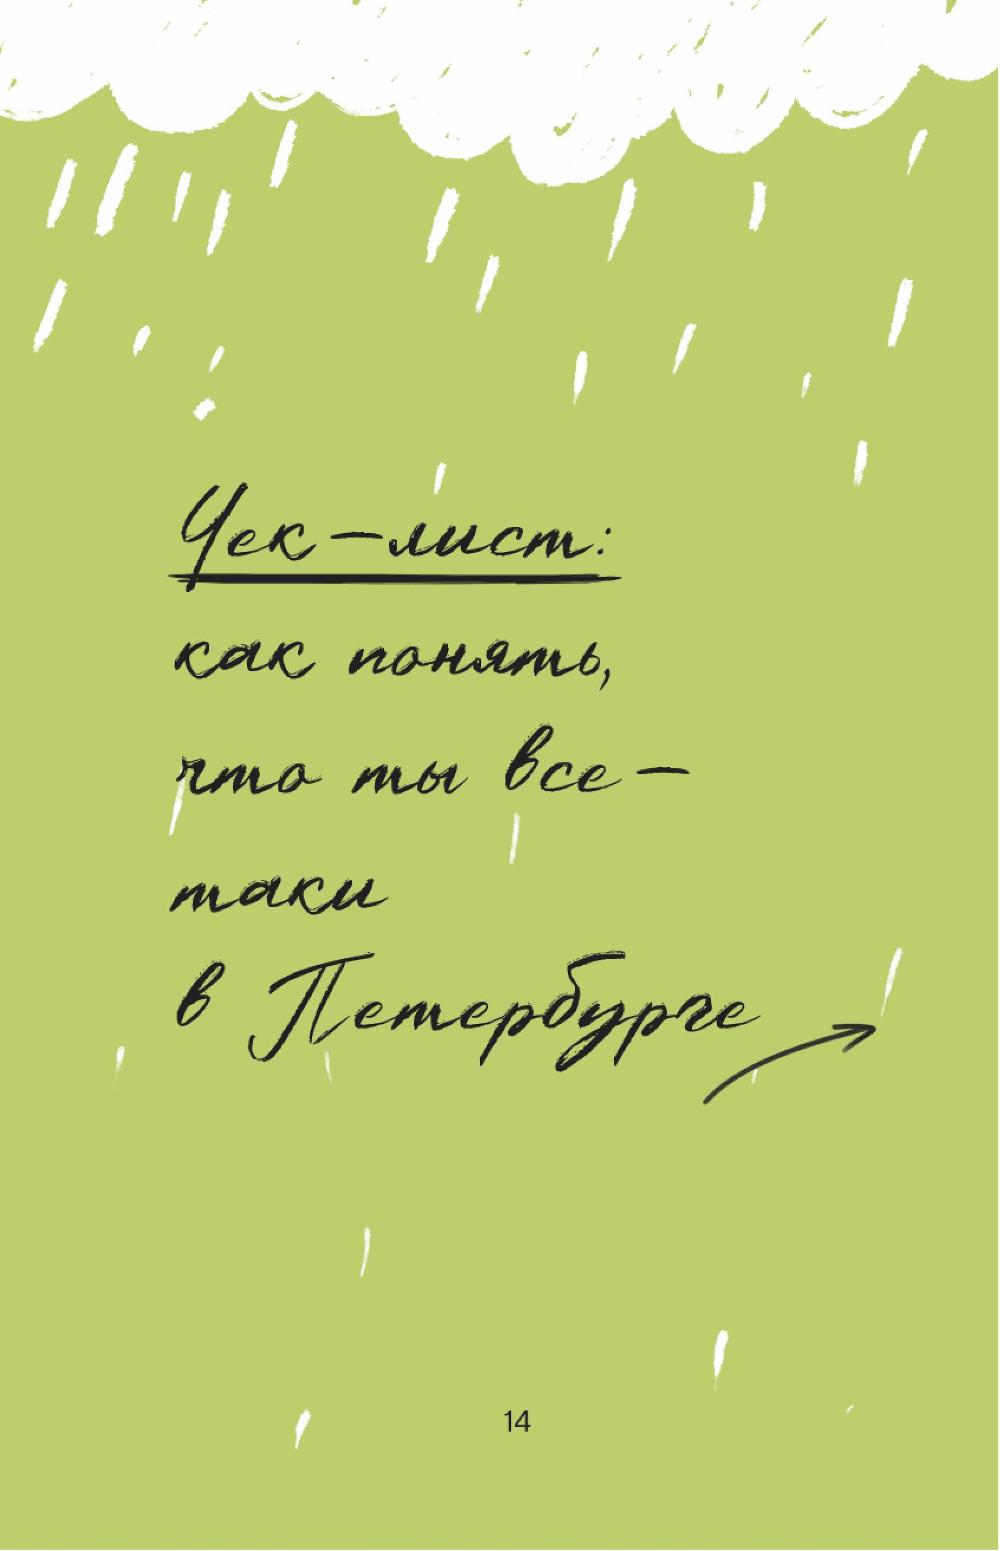 Чек-лист:
как понять,
что ты все-
таки
в Петербурге
14